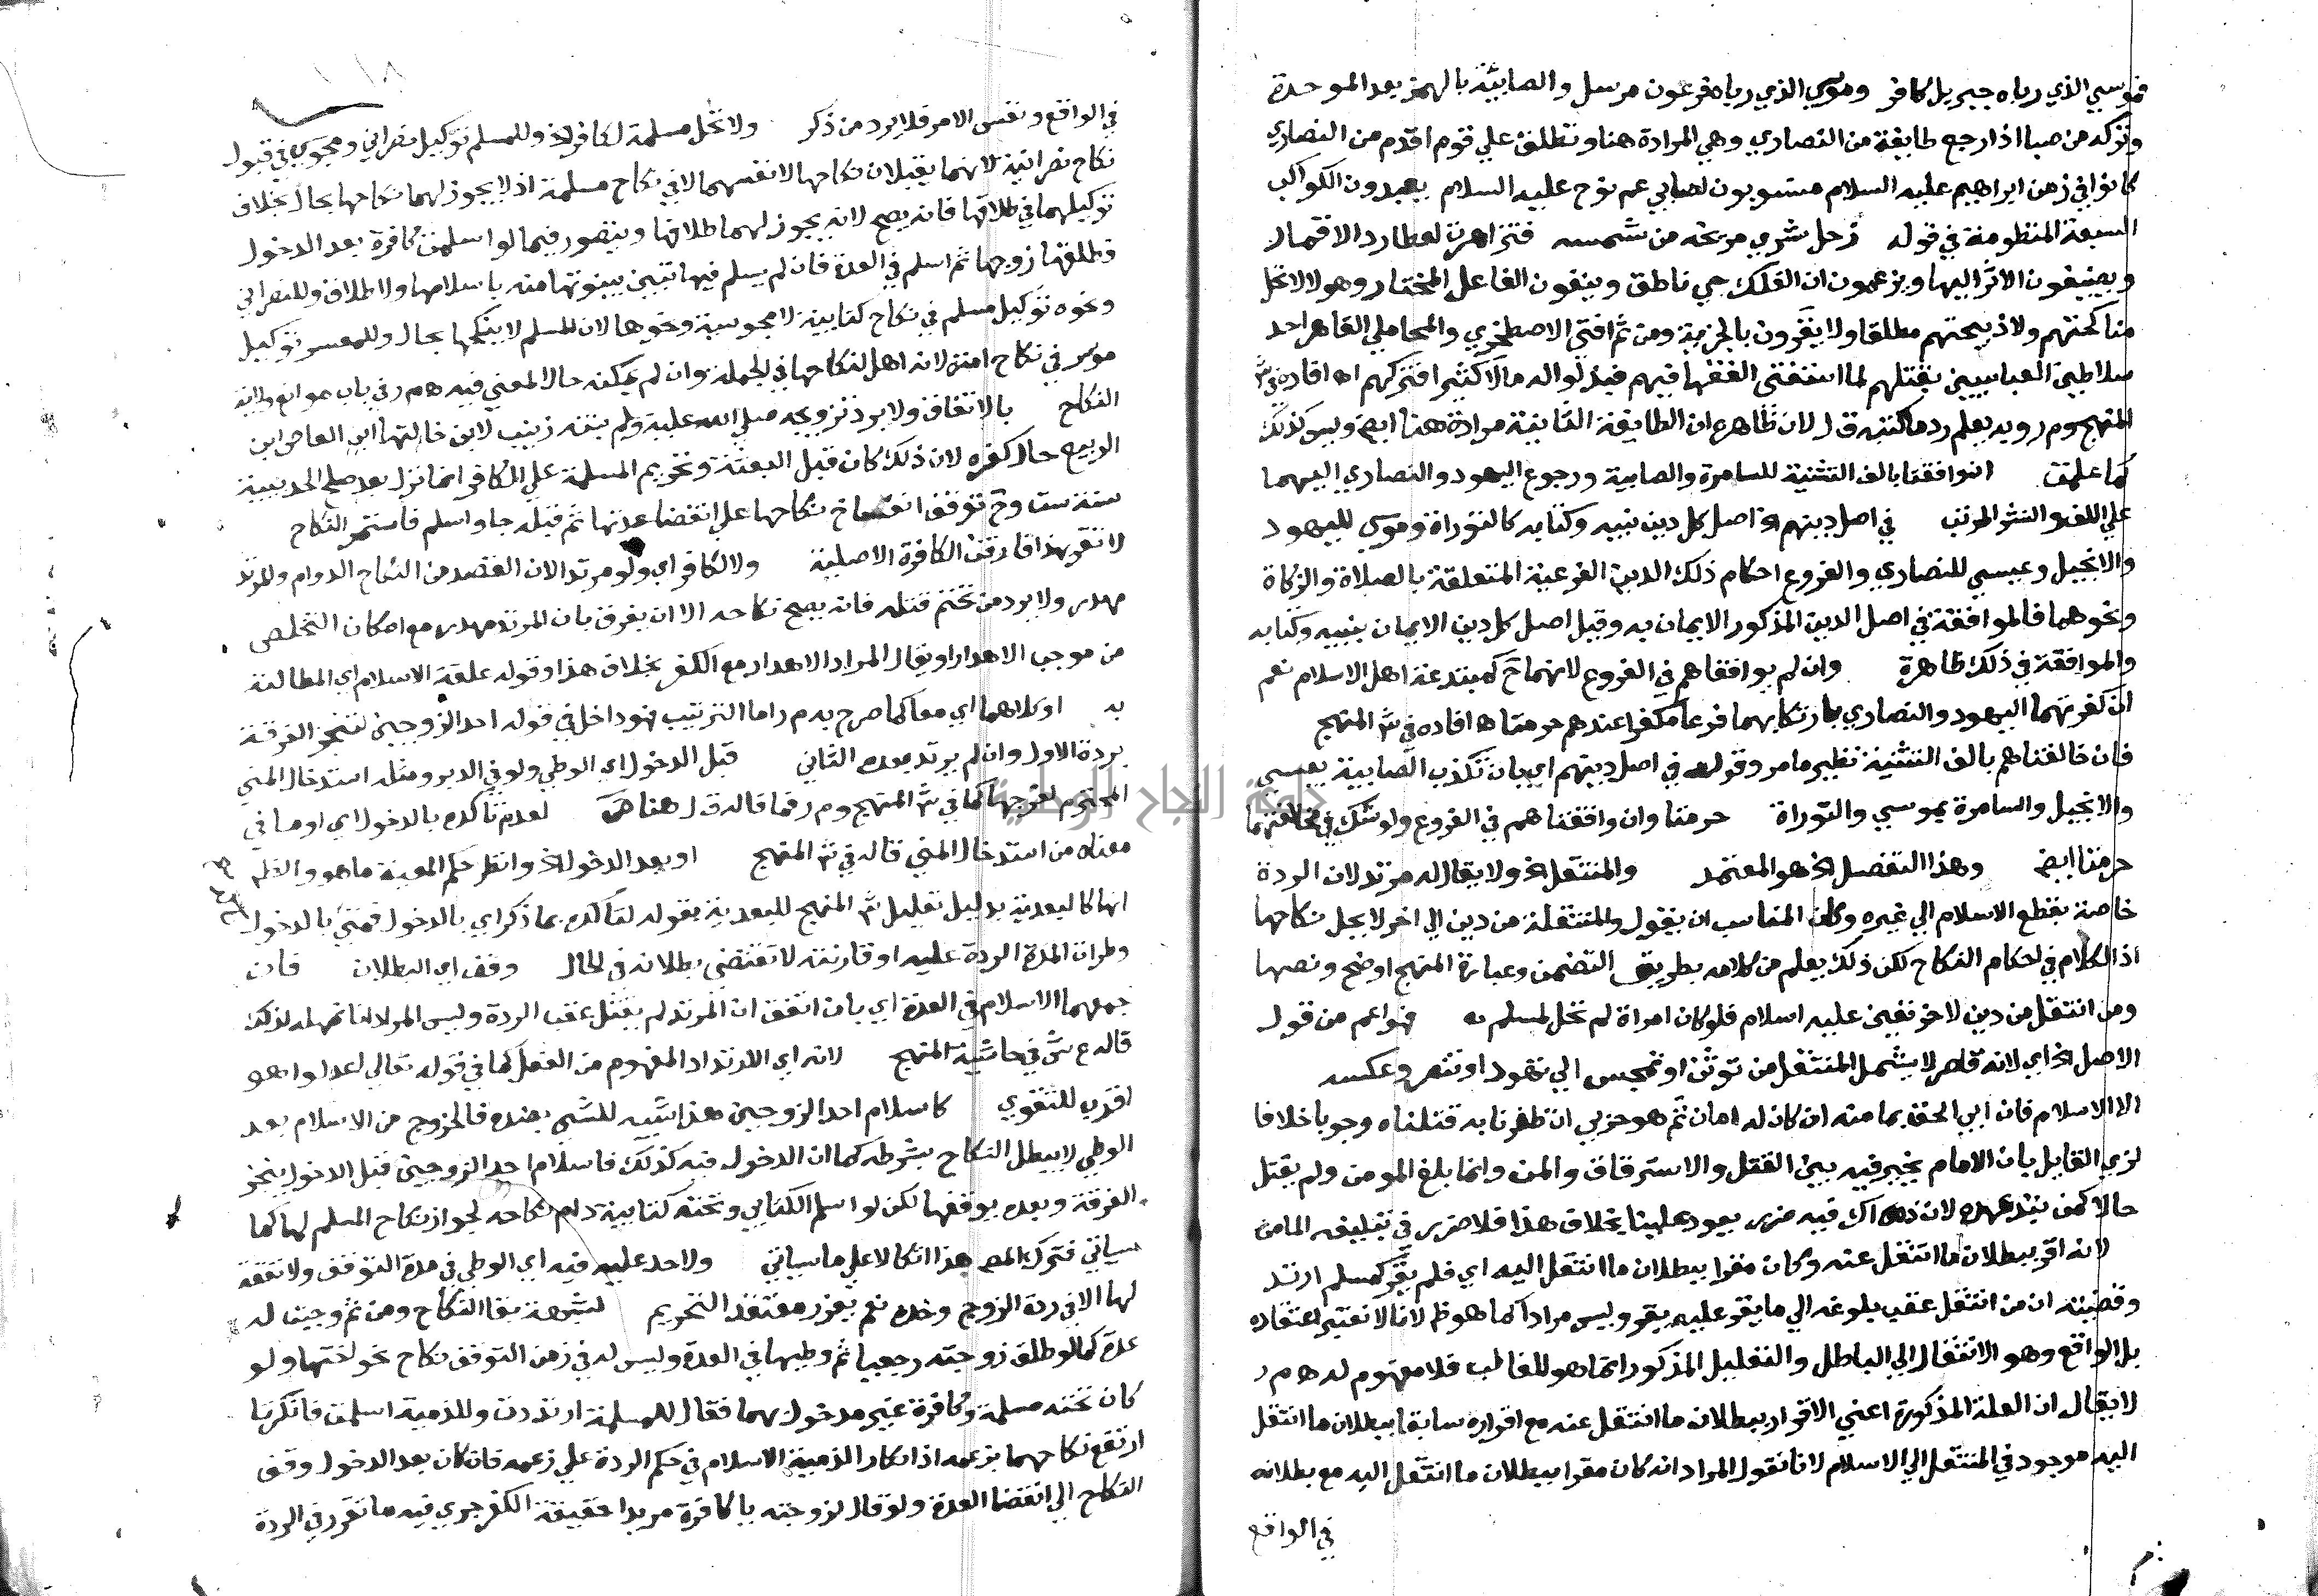 فموسي الذي رباه جبريل كافر وموسي الذي رباه فرعون مرسل والصابية بالهمز بعد الموحدة
وتركه من صبا اذا رجع طايفة من النصاري وهي المرادة هنا وتطلق علي قوم اقدم من النصاري
كانوا في زمن ابراهيم عليه السلام منسوبون لصابي عم نوح عليه السلام يعبدون الكواكب
السبعة المنظومة في قوله زحل شري مريخه من شمسه فتزاهرت لعطارد الاقمار
ويضيفون الاثر اليها ويزعمون ان الفلك حي ناطق وينفون الفاعل المختار وهولا لا تحل
مناكحتهم ولا ذبيحتهم مطلقا ولا يقرون بالجزية ومن ثم افتي الاصطخري والمحاملي القاهر احد
سلاطين العباسيين بقتلهم لما استفتي الفقها فيهم فبذلوا له مالا كثيرا فتركهم اه افاده في ش
المنهج وم ر وبه يعلم رد ما كتبه ق ل لان ظاهره ان الطايفة الثانية مرادة هنا ايض وليس كذلك
كما علمت ان وافقتا بالف التثنية للسامرة والصابية ورجوع اليهود والنصاري اليهما
علي اللف والنشر المرتب في اصل دينهم الخ اصل كل دين نبيه وكتابه كالتوراة وموسي لليهود
والانجيل وعيسي للنصاري والفروع احكام ذلك الدين الفرعية المتعلقة بالصلاة والزكاة
ونحوهما فالموافقة في اصل الدين المذكور الايمان به وقيل اصل كل دين الايمان بنبيه وكتابه
والموافقة في ذلك ظاهرة وان لم يوافقاهم في الفروع لانهما ح كمبتدعة اهل الاسلام نعم
ان كفرتهما اليهود والنصاري بارتكابهما فرعا مكفرا عندهم حرمتا ها افاده في ش المنهج
فان خالفتاهم بالف التثنية نظير ما مر وقوله في اصل دينهم اي بان تكذب الصابية بعيسي
والانجيل والسامرة بموسي والتوراة حرمتا وان وافقتاهم في الفروع ولو شك في مخالفتهما
حرمتا ايض وهذا التفصيل الخ هو المعتمد والمنتقل الخ ولا يقال له مرتد لان الردة
خاصة بقطع الاسلام الي غيره وكان المناسب ان يقول والمنتقلة من دين الي اخر لا يحل نكاحها
اذ الكلام في احكام النكاح لكن ذلك يعلم من كلامه بطريق التضمن وعبارة المنهج اوضح ونصها
ومن انتقل من دين لاخر تعين عليه اسلام فلو كان امراة لم تحل لمسلم فهو اعم من قول
الاصل الخ اي لانه قاصر لا يشمل المنتقل من توثن او تمجس الي تهود او تنصر وعكسه
الا الاسلام فان ابي الحق بمامنه ان كان له امان ثم هو حربي ان ظفرنا به قتلناه وجوبا خلافا
لزي القايل بان الامام يخير فيه بين القتل والاسترقاق والمن وانما بلغ المومن ولم يقتل
حالا كمن نبذ عهده لان ذاك فيه ضرر يعود علينا بخلاف هذا فلا ضرر في تبليغه المامن
لانه اقر ببطلان ما انتقل عنه وكان مقرا ببطلان ما انتقل اليه اي فلم يقر كمسلم ارتد
وقضيته ان من انتقل عقب بلوغه الي ما يقر عليه يقر وليس مرادا كما هو ظ لانا لا نعتبر اعتقاده
بل الواقع وهو الانتقال الي الباطل والتعليل المذكور انما هو للغالب فلا مفهوم له ه م ر
لا يقال ان العلة المذكورة اعني الاقرار ببطلان ما انتقل عنه مع اقراره سابقا ببطلان ما انتقل
اليه موجود في المنتقل الي الاسلام لانا نقول المراد انه كان مقرا ببطلان ما انتقل اليه مع بطلانه
في الواقع
في الواقع ونفس الامر فلا يرد من ذكر ولا تحل مسلمة لكافر الخ وللمسلم توكيل نصراني ومجوسي في قبول
نكاح نصرانية لانهما يقبلان نكاحها لانفسهما لا في نكاح مسلمة اذ لا يجوز لهما نكاحها بحال بخلاف
توكيلهما في طلاقها فانه يصح لانه يجوز لهما طلاقها ويتصور فيما لو اسلمت كافرة بعد الدخول
فطلقها زوجها ثم اسلم في العدة فان لم يسلم فيها تبين بينونتها منه باسلامها ولا طلاق وللنصراني
ونحوه توكيل مسلم في نكاح كتابية لا مجوسية ونحوها لان المسلم لا ينكحها بحال وللمعسر توكيل
موسر في نكاح امة لانه اهل لنكاحها في الجملة وان لم يمكنه حالا لمعني فيه ه م ر في باب موانع ولاية
النكاح بالاتفاق ولا يرد تزويجه صلي الله عليه ولم بنته زينب لابن خالتها ابي العاص ابن
الربيع حال كفره لان ذلك كان قبل البعثة وتحريم المسلمة علي الكافر انما نزل بعد صلح الحديبية
سنة ست وح توقف انفساخ نكاحها علي انقضا عدتها ثم قبله جا واسلم فاستمر النكاح
لا تقر بهذا فارقت الكافرة الاصلية ولا لكافر اي ولو مرتدا لان القصد من النكاح الدوام والمرتد
مهدر ولا يرد من تحتم قتله فانه يصح نكاحه الا ان يفرق بان المرتد مهدر مع امكان التخلص
من موجب الاهدار او يقال المراد الاهدار مع الكفر بخلاف هذا وقوله علقة الاسلام اي المطالبة
به او كلاهما اي معا كما صرح به م ر اما الترتيب فهو داخل في قوله احد الزوجين لتنجز الفرقة
بردة الاول وان لم يرتد بعده الثاني قبل الدخول اي الوطي ولو في الدبر ومثله استدخال المني
المحترم لفرجها كما في ش المنهج وم ر فما قاله ق ل هنا لعدم تاكده بالدخول اي او ما في
معناه من استدخال المني قاله في ش المنهج او بعد الدخول الخ وانظر حكم المعية ما هو والظاهر
انها كالبعدية بدليل تعليل ش المنهج للبعدية بقوله لتاكده بما ذكر اي بالدخول فمتي بالدخول
وطرات المدة الردة عليه او قارنته لا تقتضي بطلانه في الحال وقف اي البطلان فان
جمعهما الاسلام في العدة اي بان اتفق ان المرتد لم يقتل عقب الردة وليس المراد انا نمهله لذلك
قاله ع ش في حاشية المنهج لانه اي الارتداد المفهوم من الفعل كما في قوله تعالي اعدلوا هو
اقرب للتقوي كاسلام احد الزوجين هذا تشبيه للشي بضده فالخروج من الاسلام بعد
الوطي لا يبطل النكاح بشرطه كما ان الدخول فيه كذلك فاسلام احد الزوجين قبل الدخول ينجز
الفرقة وبعده يوقفها لكن لو اسلم الكتابي وتحته كتابية دام نكاحه لجواز نكاح المسلم لها كما
سياتي فترك المص هذا اتكالا علي ما سياتي ولا حد عليه فيه اي الوطي في مدة التوقف ولا نفقة
لها الا في ردة الزوج وحده نعم يعزر معتقد التحريم لشبهة بقا النكاح ومن ثم وجبت له
عدة كما لو طلق زوجته رجعيا ثم وطيها في العدة وليس له في زمن التوقف نكاح نحو اختها ولو
كان تحته مسلمة وكافرة غير مدخول بهما فقال للمسلمة ارتددت وللذمية اسلمت فانكرتا
ارتفع نكاحهما بزعمه اذ انكار الذمية الاسلام في حكم الردة علي زعمه فان كان بعد الدخول وقف
النكاح الي انقضا العدة ولو قال لزوجته يا كافرة مريدا حقيقة الكفر جري فيه ما تقرر في الردة